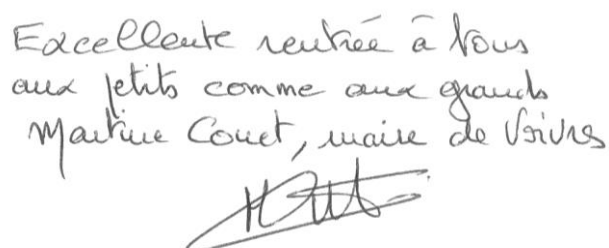 Excellente rentrée à tous
aux petits comme aux grands
Martine Couet, maire de Voivres